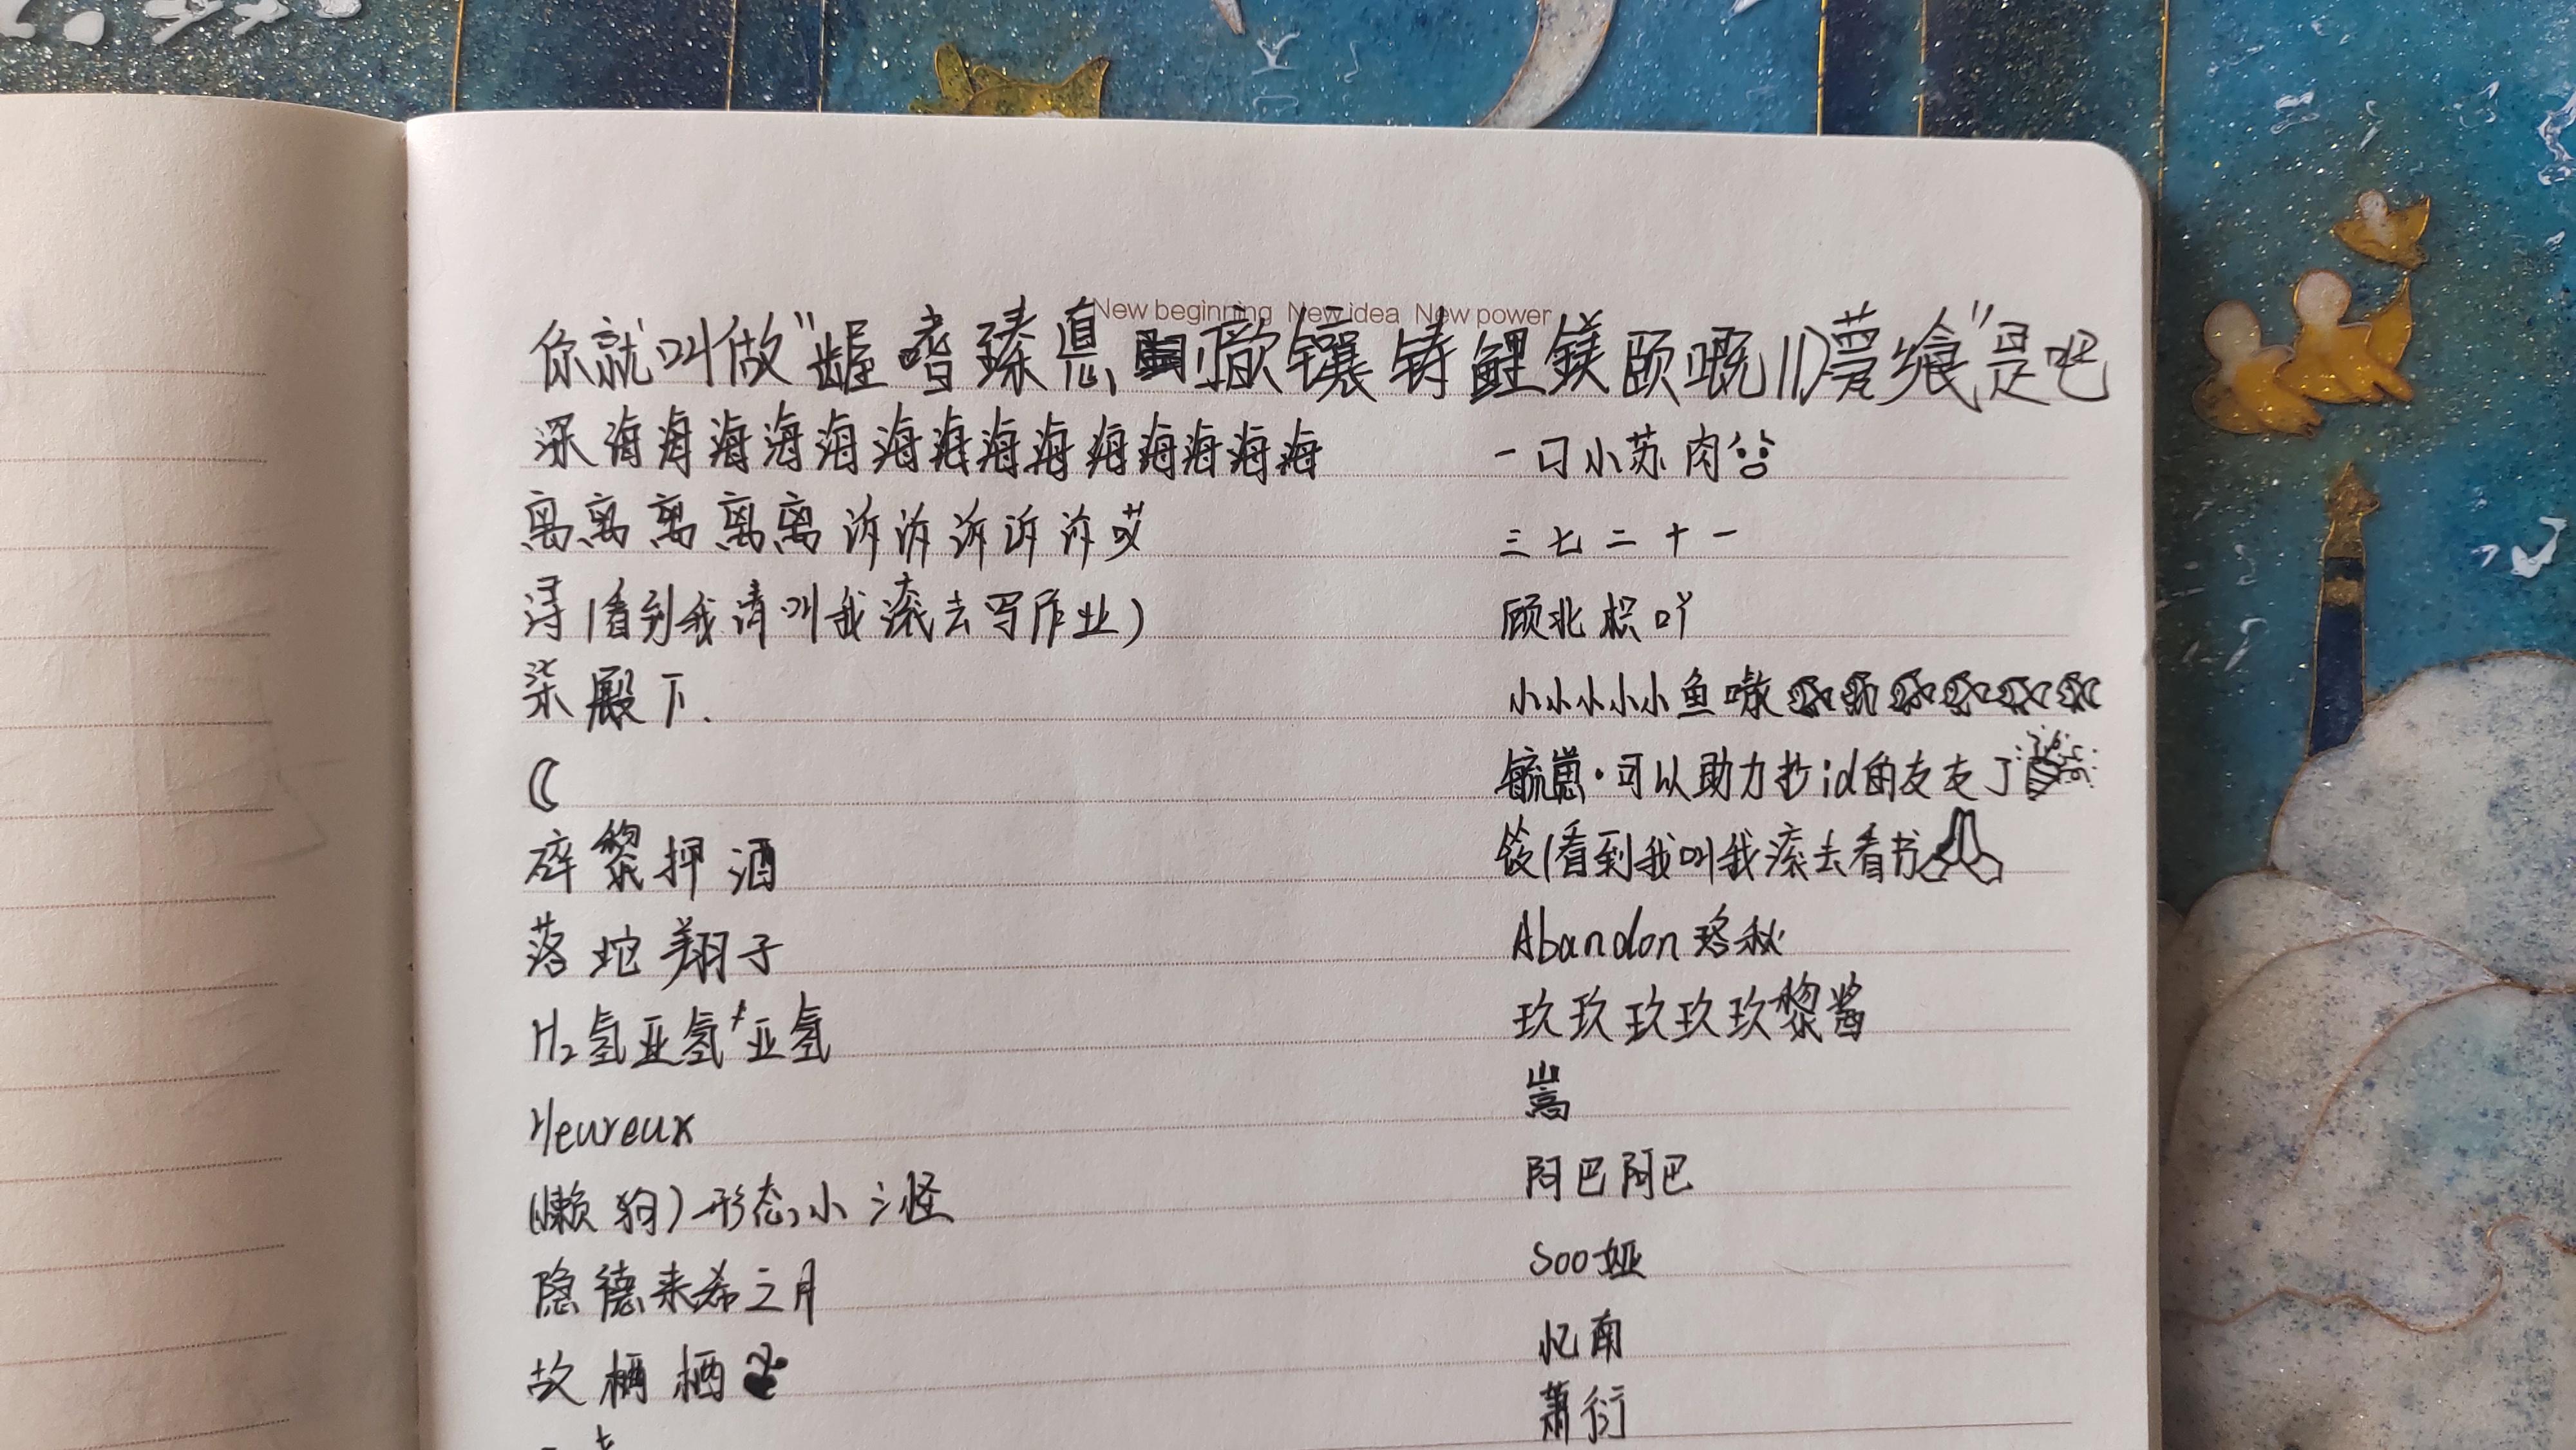 New beginning New idea New power
你就叫做"龌嗜臻惪 撳镶铸鲤鎂颐嘅川萼飨"是吧
深海海海海海海海海海海海海海海
一口小苏肉
离离离离离诉诉诉诉诉哎
三七二十一
浔(看到我请叫我滚去写作业)
顾北枳吖
柒殿下.
小小小小小鱼嗷
毓崽·可以助力抄id的友友了
碎黎押酒
(看到我叫我滚去看书
落坨翔子
Abandon 秋
H₂氢亚氢
玖玖玖玖玖黎酱
Heureux
嵩
(懒狗)形态,小三怪
阿巴阿巴
隐德来希之月
Soo娅
忆南
故栖栖
萧衍